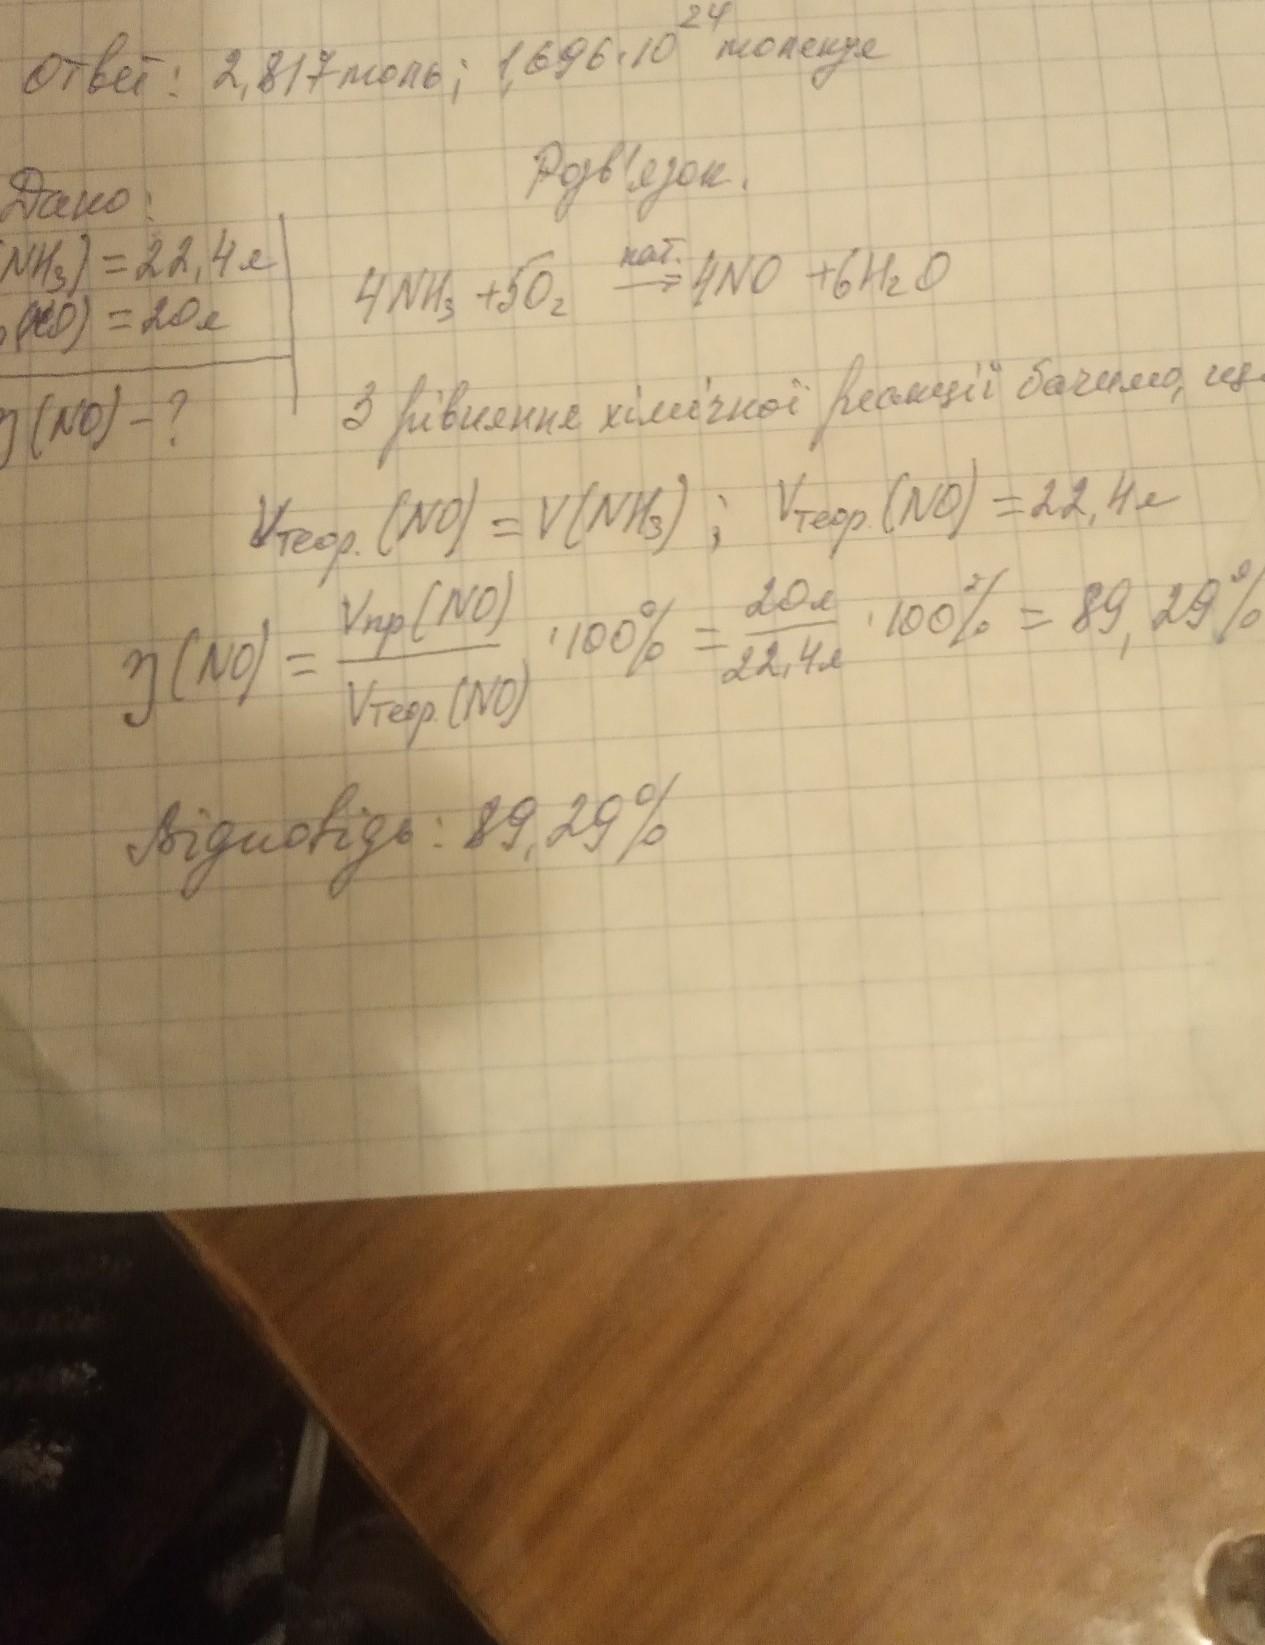 Ответ: 2,817 моль; 1,696·10²⁴ молекул
Розв'язок.
Дано:
(NH₃) = 22,4л
(NO) = 20л
η(NO) - ?
4NH₃ + 5O₂ кат.→ 4NO + 6H₂O
З рівняння хімічної реакції бачимо, що
Vтеор.(NO) = V(NH₃); Vтеор.(NO) = 22,4л
η(NO) = Vпр(NO) / Vтеор.(NO) · 100% = 20л / 22,4л · 100% = 89,29%
Відповідь: 89,29%